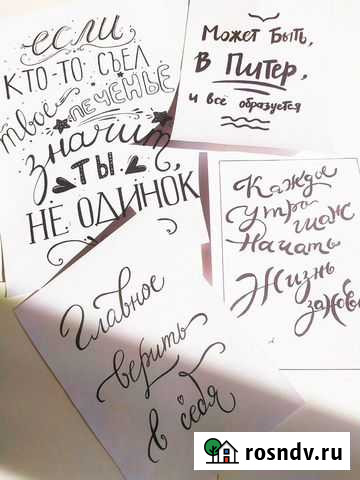 если
кто-то съел
твоё печенье
значит
ты
не одинок
Может Быть,
в Питер,
и всё образуется
Каждое
Утро шанс
Начать
Жизнь
заново
Главное
верить
в себя
rosndv.ru